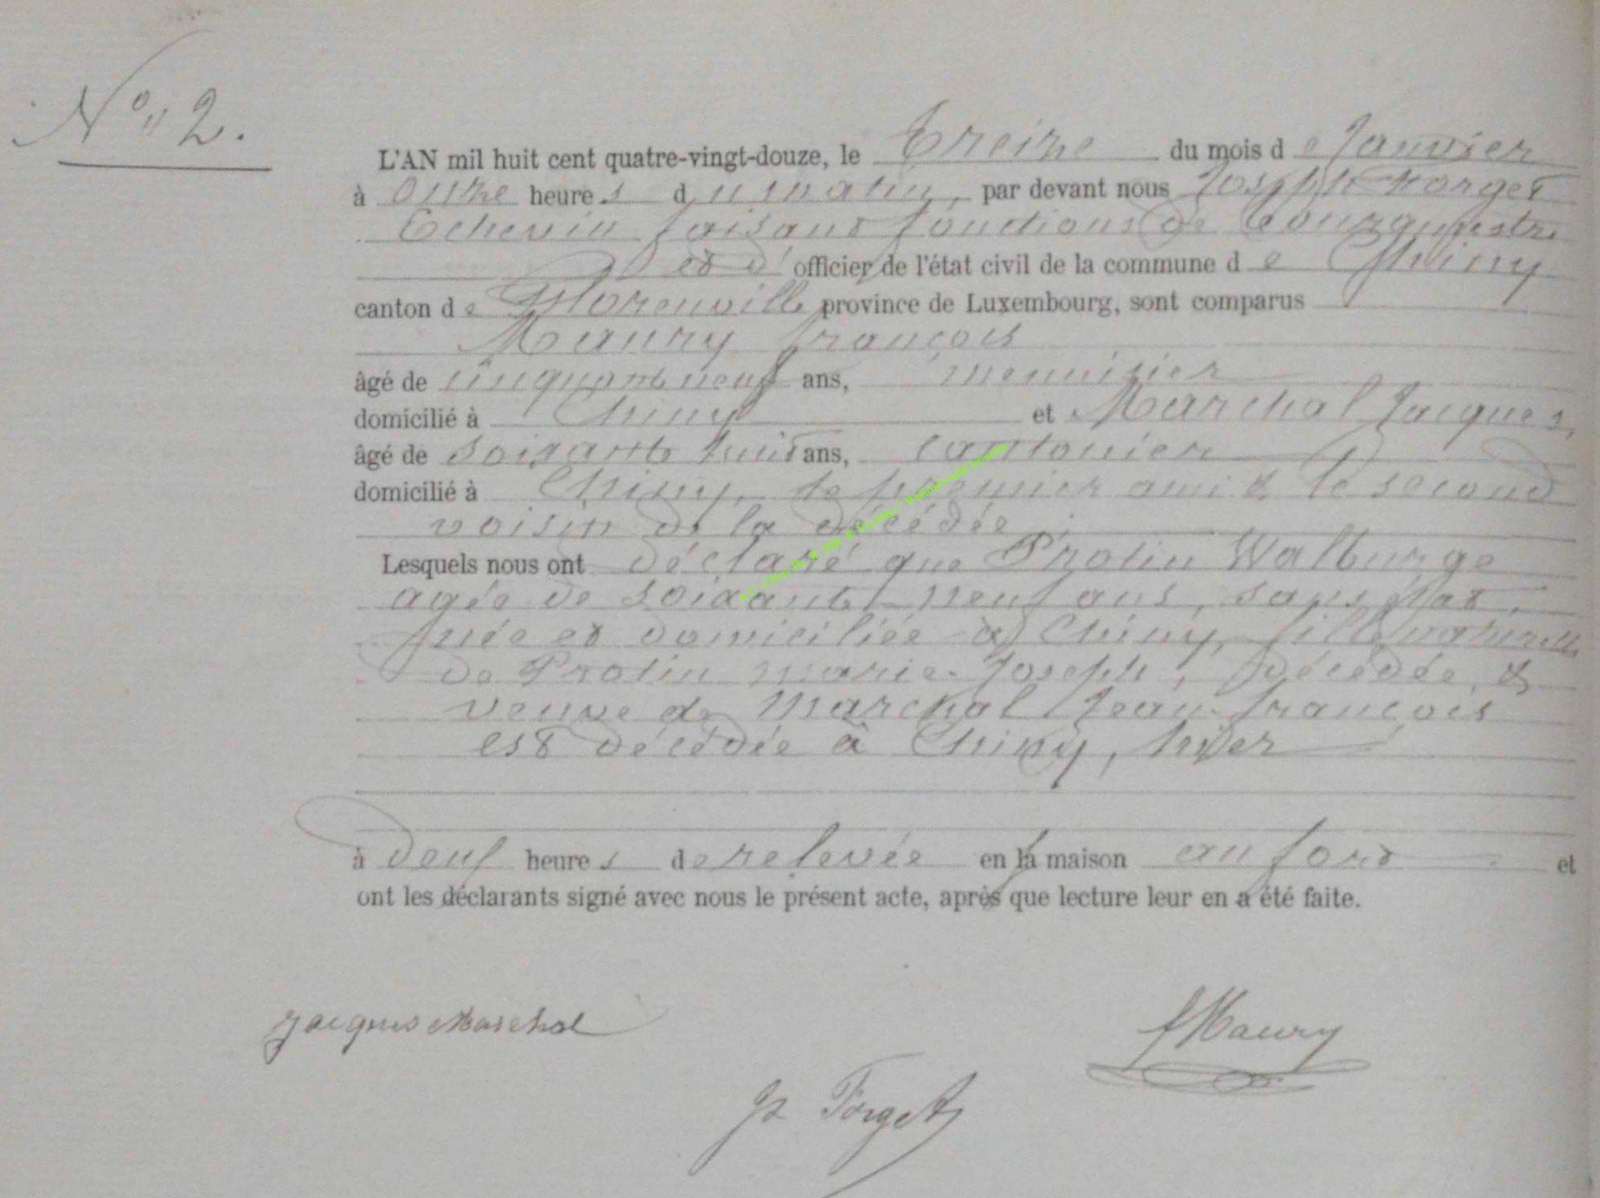 N° 2.
L'AN mil huit cent quatre-vingt-douze, le Treize du mois de Janvier
à onze heures du matin, par devant nous Joseph Forget
Echevin faisant fonctions de bourgmestre
et d'officier de l'état civil de la commune de Chiny
canton de Florenville province de Luxembourg, sont comparus
Maury françois
âgé de cinquante neuf ans, menuisier
domicilié à Chiny et Marchal Jacques,
âgé de soixante huit ans, cantonier
domicilié à Chiny, le premier ami & le second
voisin de la décédée.
Lesquels nous ont déclaré que Protin Walburge
agée de soixante neuf ans, sans état,
née et domiciliée à Chiny, fille naturelle
de Protin marie-Joseph, décédée, &
veuve de Marchal Jean-françois
est décédée à Chiny, hier
à deux heures de relevée en la maison au fond et
ont les déclarants signé avec nous le présent acte, après que lecture leur en a été faite.
Jacques Marchal
f Maury
Js Forget